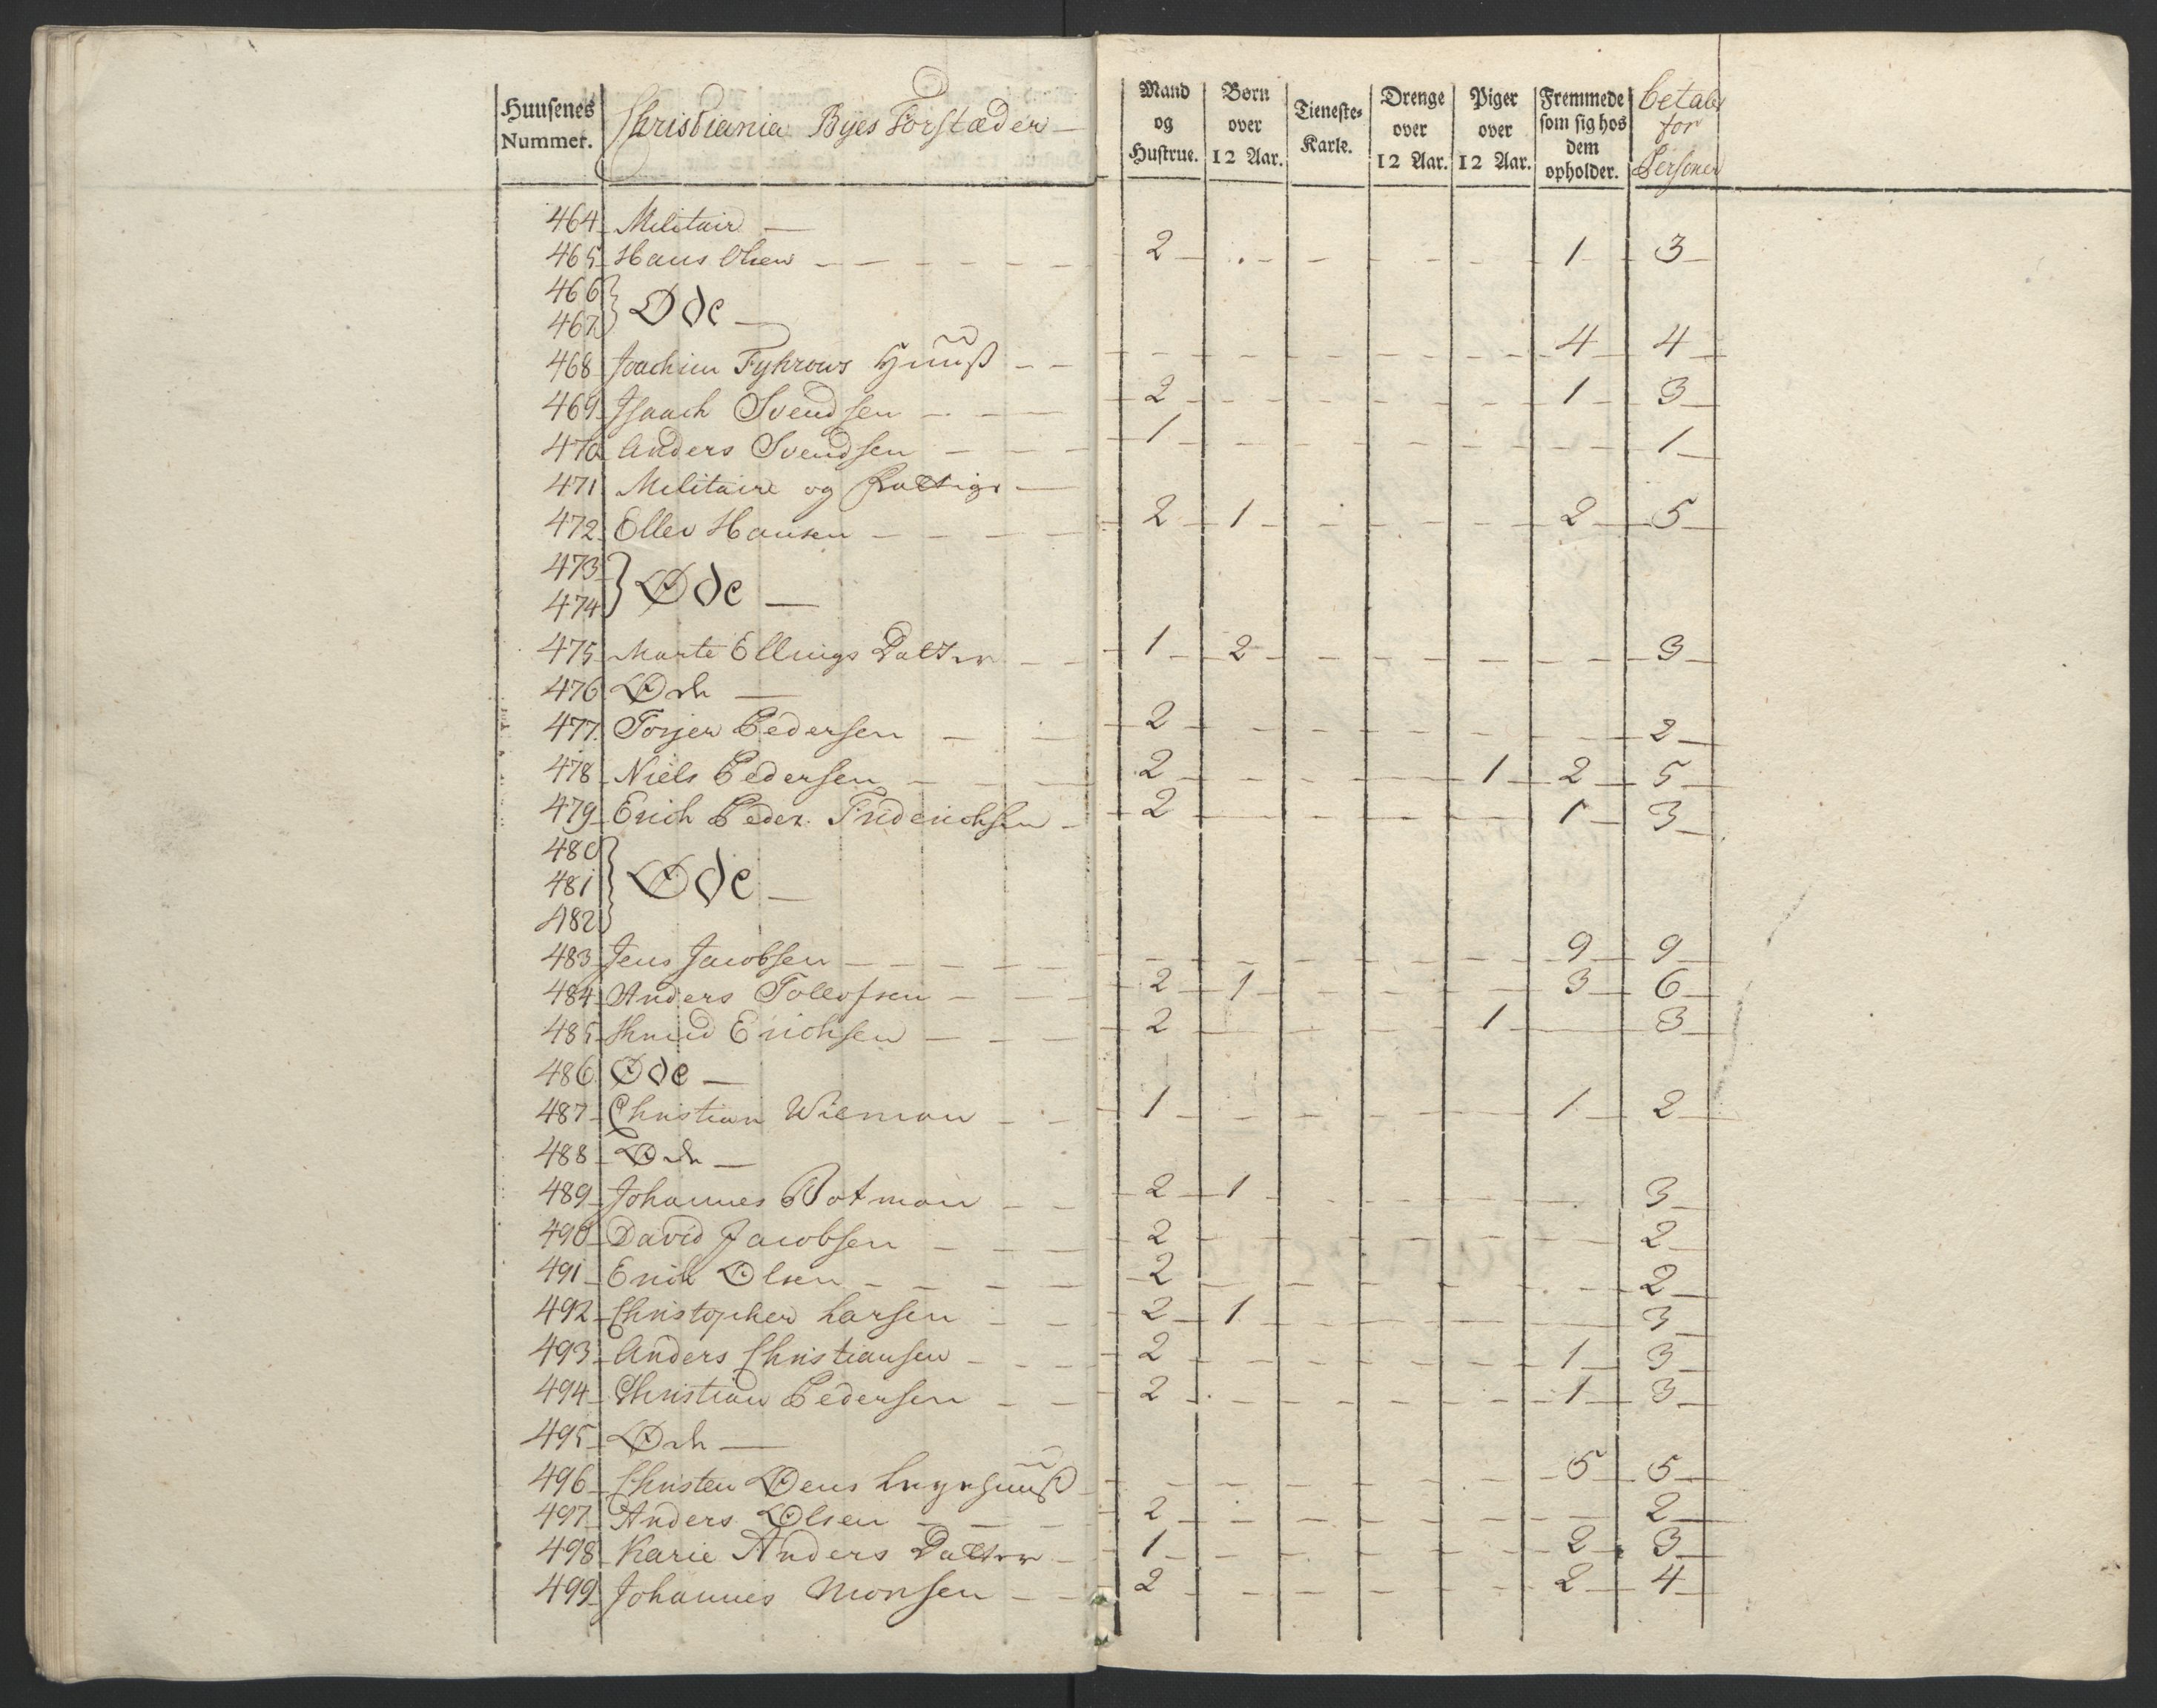 Huusenes Nummer. Christiania Byes Forstæder — Mand og Hustrue. Børn over 12 Aar. Tieneste-Karle. Drenge over 12 Aar. Piger over 12 Aar. Fremmede som sig hos dem opholder. betaler for Personer
464 Militair —
465 Hans Olsen 2 1 3
466 } Øde —
467
468 Joachim Fyhrows Huuß 4 4
469 Isaach Svendsen 2 1 3
470 Anders Svendsen 1 1
471 Militaire og Fattige —
472 Ellev Hansen 2 1 2 5
473 } Øde —
474
475 Marte Ellings Datter 1 2 3
476 Øde —
477 Torjer Pedersen 2 2
478 Niels Pedersen 2 1 2 5
479 Erich Peder Friderichsen 2 1 3
480 } Øde —
481
482
483 Jens Jacobsen 9 9
484 Anders Tollofsen 2 1 3 6
485 Knud Erichsen 2 1 3
486 Øde —
487 Christian Wieman 1 1 2
488 Øde —
489 Johannes Botman 2 1 3
490 David Jacobsen 2 2
491 Erich Olsen 2 2
492 Christopher Larsen 2 1 3
493 Anders Christiansen 2 1 3
494 Christian Pedersen 2 1 3
495 Øde —
496 Christen Øens 5 5
497 Anders Olsen 2 2
498 Karie Anders Datter 1 2 3
499 Johannes Monsen 2 2 4